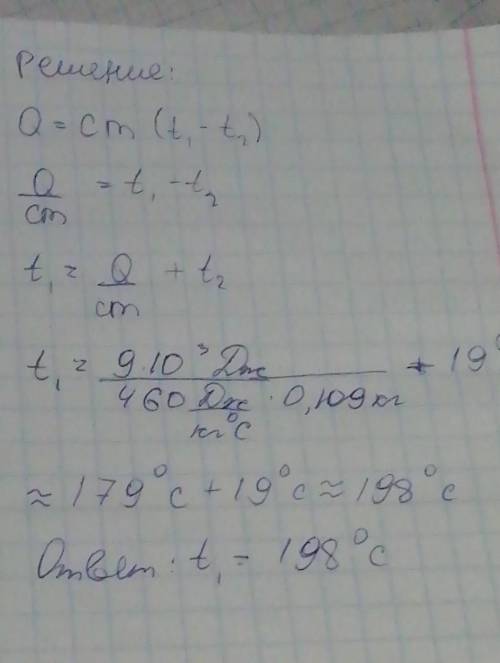 Решение:
Q = cm (t₁ - t₂)
Q/cm = t₁ - t₂
t₁ = Q/cm + t₂
t₁ = 9·10³ Дж / 460 Дж/кг°С · 0,109 кг + 19°
≈ 179°С + 19°С ≈ 198°С
Ответ: t₁ = 198°С